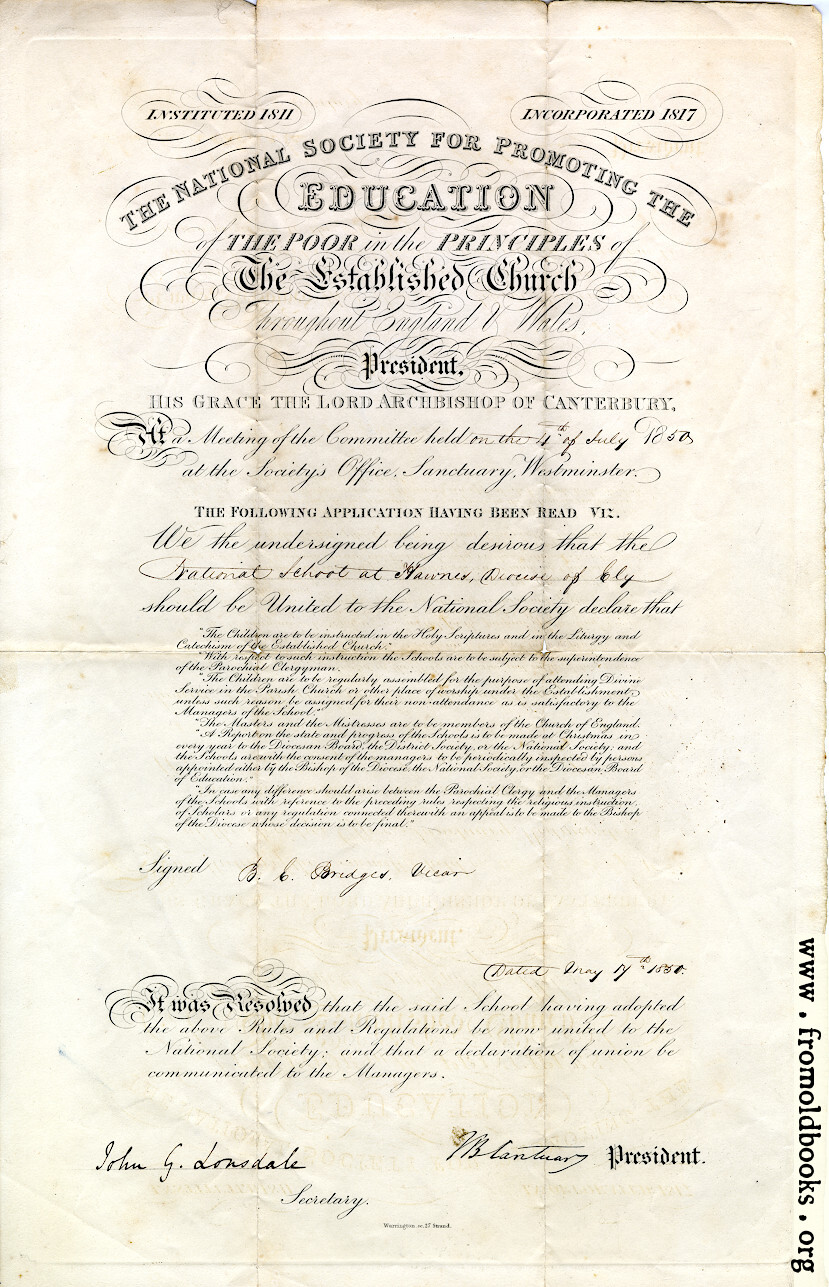 INSTITUTED 1811
INCORPORATED 1817
THE NATIONAL SOCIETY FOR PROMOTING THE
EDUCATION
of THE POOR in the PRINCIPLES of
The Established Church
Throughout England & Wales,
President,
HIS GRACE THE LORD ARCHBISHOP OF CANTERBURY,
At a Meeting of the Committee held on the 4th of July 1850
at the Society's Office, Sanctuary, Westminster.
THE FOLLOWING APPLICATION HAVING BEEN READ VIZ.
We the undersigned being desirous that the
National School at Hawnes, Diocese of Ely
should be United to the National Society declare that
"The Children are to be instructed in the Holy Scriptures and in the Liturgy and
Catechism of the Established Church."
"With respect to such instruction the Schools are to be subject to the superintendence
of the Parochial Clergyman.
"The Children are to be regularly assembled for the purpose of attending Divine
Service in the Parish Church or other place of worship under the Establishment,
unless such reason be assigned for their non-attendance as is satisfactory to the
Managers of the School."
"The Masters and the Mistresses are to be members of the Church of England.
"A Report on the state and progress of the Schools is to be made at Christmas in
every year to the Diocesan Board, the District Society, or the National Society; and
the Schools are with the consent of the managers to be periodically inspected by persons
appointed either by the Bishop of the Diocese, the National Society, or the Diocesan Board
of Education."
"In case any difference should arise between the Parochial Clergy and the Managers
of the Schools with reference to the preceding rules respecting the religious instruction
of Scholars or any regulation connected therewith an appeal is to be made to the Bishop
of the Diocese whose decision is to be final."
Signed B. C. Bridges, Vicar
Dated May 17th 1850.
It was Resolved that the said School having adopted
the above Rules and Regulations be now united to the
National Society; and that a declaration of union be
communicated to the Managers.
John G. Lonsdale
J B Cantuar President.
Secretary.
Warrington, sc. 27 Strand.
www.fromoldbooks.org